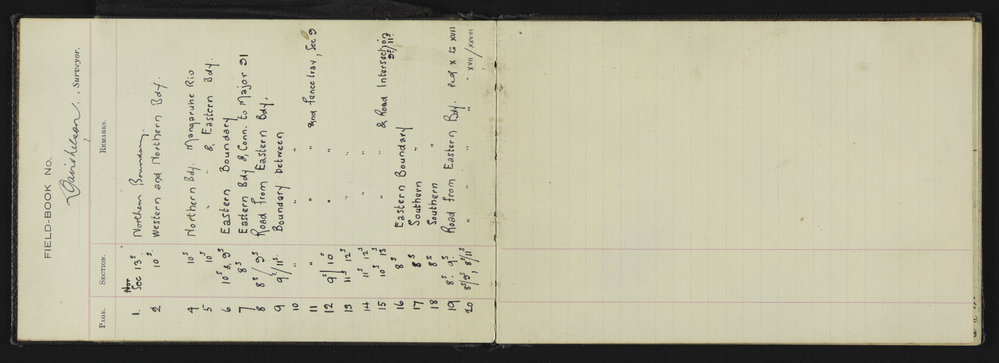 FIELD-BOOK No.
Surveyor.
PAGE. SECTION. REMARKS.
1. Sec 13ˢ Northern Boundary.
2 10ˢ. Western and Northern Bdy.
4 10ˢ Northern Bdy. Mangaruhe Riv
5 10ˢ " " & Eastern Bdy.
6 10ˢ & 9ˢ Eastern Boundary
7 8ˢ Eastern Bdy & Conn. to Major 91
8 8ˢ/9ˢ Road from Eastern Bdy.
9 9ˢ/11ˢ. Boundary between
10 " "
11 " " " and Fence tray, Sec 9
12 9ˢ/10ˢ " "
13 11ˢ 12ˢ " "
14 11ˢ 12ˢ " "
15 10ˢ 13 " " & Road Intersection 9ˢ/11ˢ
16 8ˢ Eastern Boundary
17 8ˢ Southern "
18 8ˢ Southern "
19 8ˢ 9ˢ Road from Eastern Bdy. Ped x to XVII
20 8ˢ/9ˢ, 8ˢ/11ˢ " " " " XVII/XXVIII